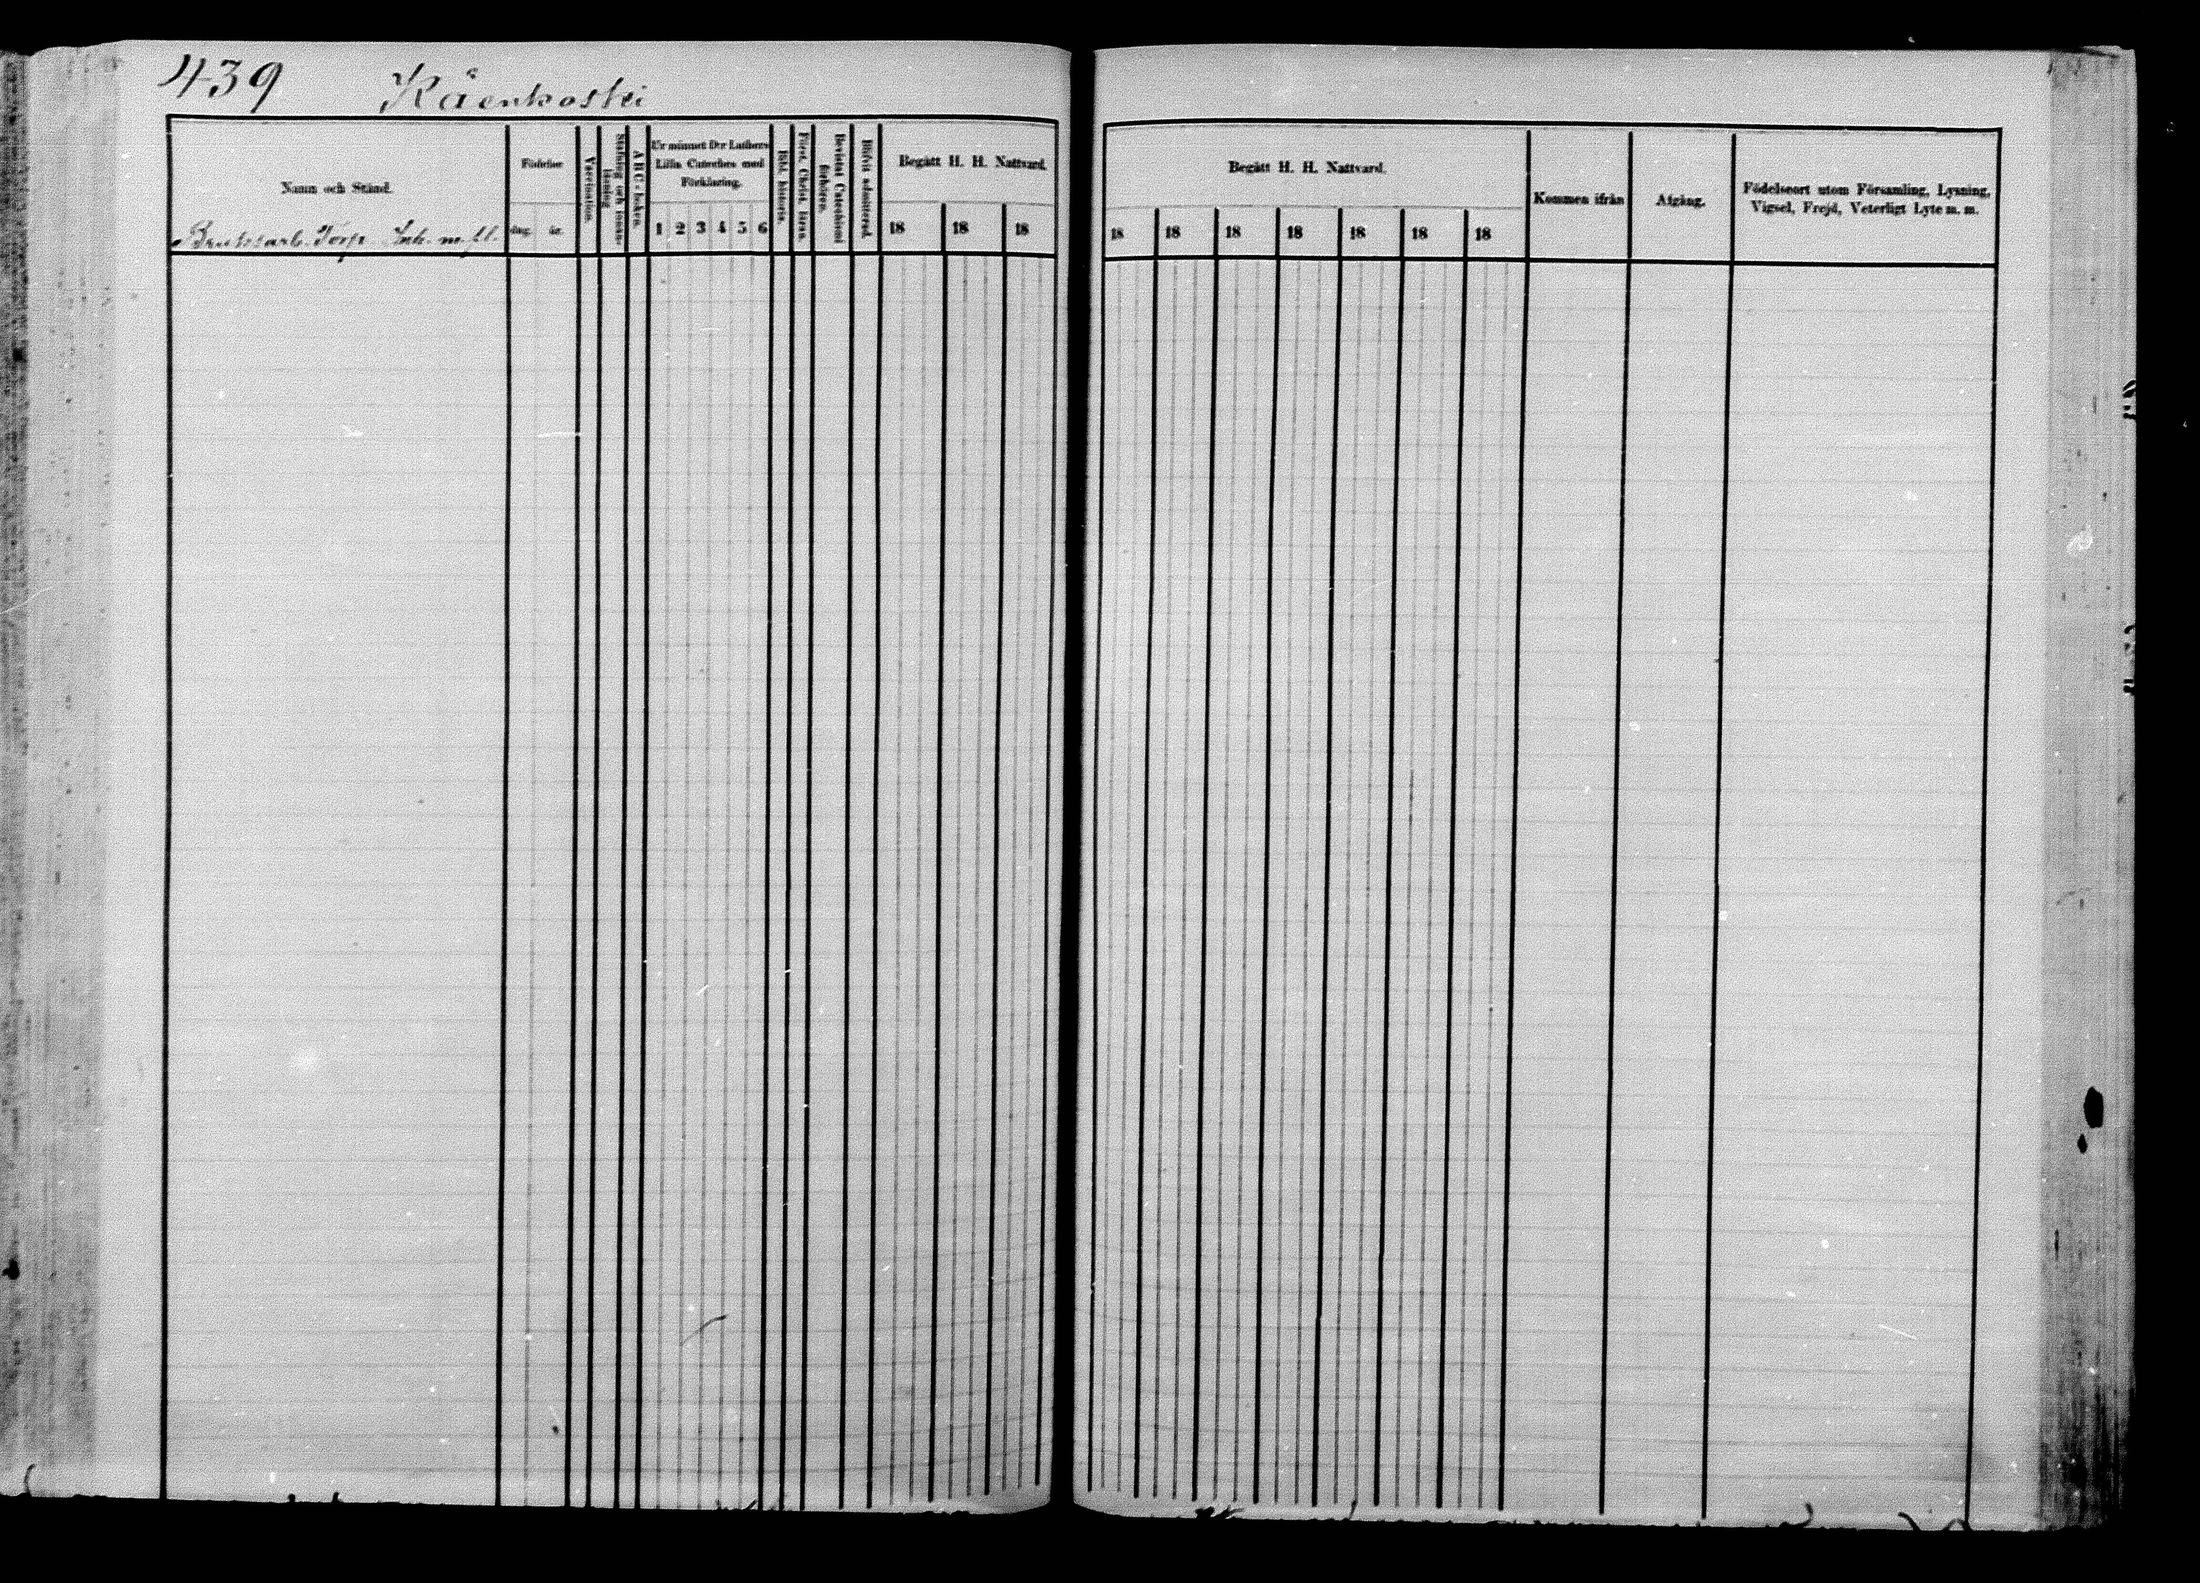 439 Kåenkoski
Namn och Stånd.
Bruksarb. Torp. Inh. m. fl.
Födelse
dag. år.
Vaccination.
Stafning och innan-
läsning
A B C-boken.
Ur minnet Der Luthers
Lilla Cateches med
Förklaring.
1 2 3 4 5 6
Bibl. historia.
Först. Christ. läran.
Bevistat Catechismi
förhören.
Blifvit admitterad.
Begått H. H. Nattvard.
18 18 18
Begått H. H. Nattvard.
18 18 18 18 18 18 18
Kommen ifrån
Afgång.
Födelseort utom Församling, Lysning,
Vigsel, Frejd, Veterligt Lyte m. m.